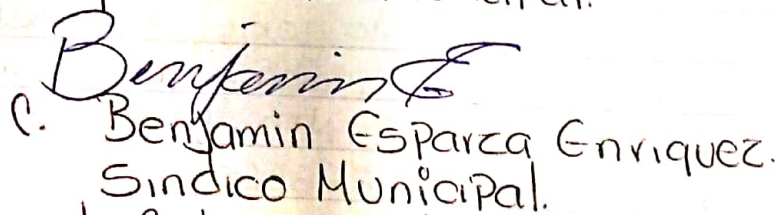 Benjamin E
C. Benjamin Esparza Enriquez.
Sindico Municipal.